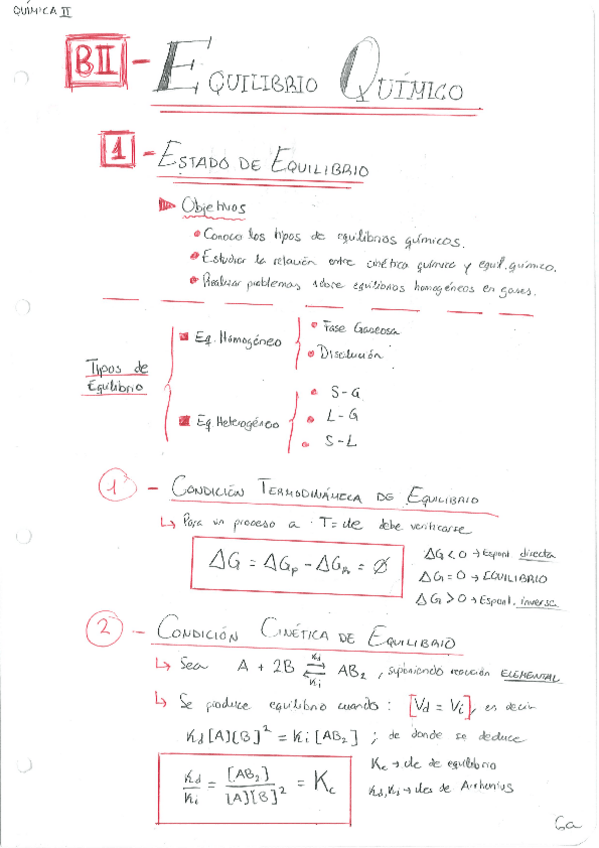 QUÍMICA II
BII - EQUILIBRIO QUÍMICO
1 - ESTADO DE EQUILIBRIO
Objetivos
• Conocer los tipos de equilibrios químicos.
• Estudiar la relación entre cinética química y equil. químico.
• Realizar problemas sobre equilibrios homogéneos en gases.
Tipos de Equilibrio
Eq. Homogéneo
• Fase Gaseosa
• Disolución
Eq Heterogéneo
• S-G
• L-G
• S-L
1º - CONDICIÓN TERMODINÁMICA DE EQUILIBRIO
↳ Para un proceso a T=cte debe verificarse
ΔG = ΔGp - ΔGR = Ø
ΔG < 0 → Espont directa
ΔG = 0 → EQUILIBRIO
ΔG > 0 → Espont. inversa
2º - CONDICIÓN CINÉTICA DE EQUILIBRIO
↳ Sea A + 2B ⇄ AB₂, suponiendo reacción ELEMENTAL
Kd
Ki
↳ Se produce equilibrio cuando: [Vd = Vi], es decir
Kd[A][B]² = Ki[AB₂] ; de donde se deduce
Kd/Ki = [AB₂]/[A][B]² = Kc
Kc → cte de equilibrio
Kd, Ki → ctes de Arrhenius
6a